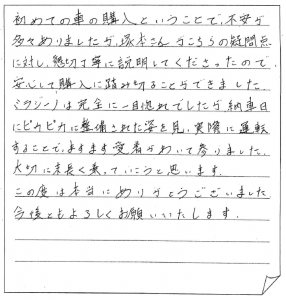 初めての車の購入ということで、不安が
多々ありましたが、塚本さんがこちらの疑問点
に対し、懇切丁寧に説明してくださったので、
安心して購入に踏み切ることができました。
ミラジーノは完全に一目惚れでしたが納車日
にピカピカに整備された姿を見、実際に運転
することで、ますます愛着がわいて参りました。
大切に末長く乗っていこうと思います。
この度は本当にありがとうございました
今後ともよろしくお願いいたします.